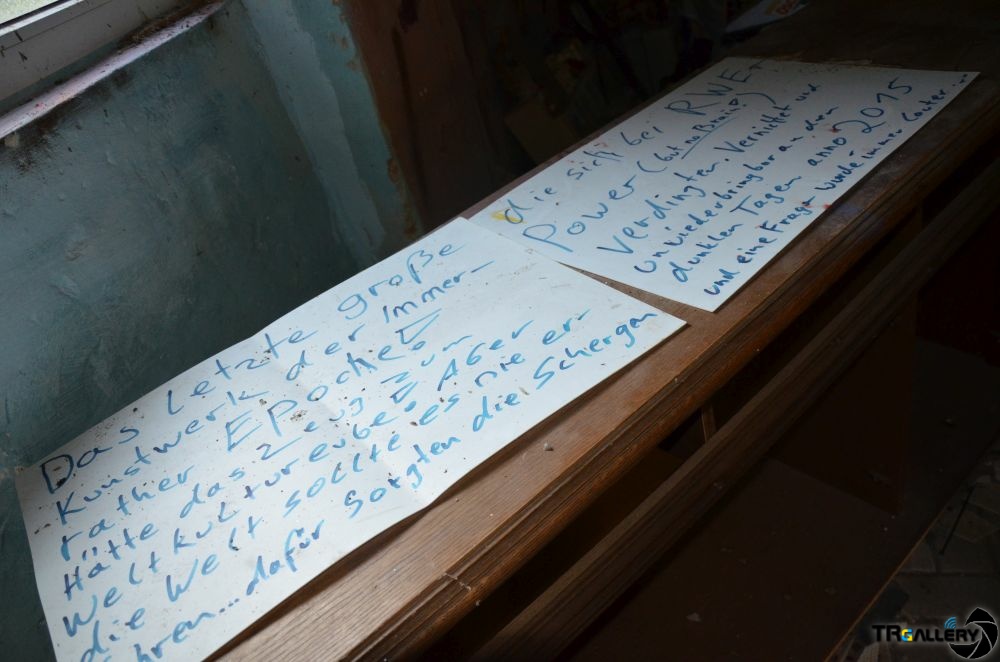 Das letzte große
Kunstwerk der Immer-
rather Epoche!
Hätte das Zeug zum
Weltkulturerbe! Aber
die Welt sollte es nie er-
fahren... dafür sorgten die Schergen
die sich bei RWE-
Power (but no Brain)
verdingten. Vernichtet und
unwiederbringbar an den
dunklen Tagen anno 2015
und eine Frage wurde immer lauter...
TRGALLERY